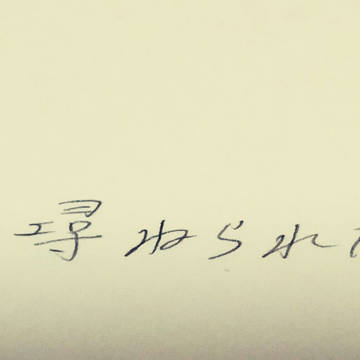 尋ねられた